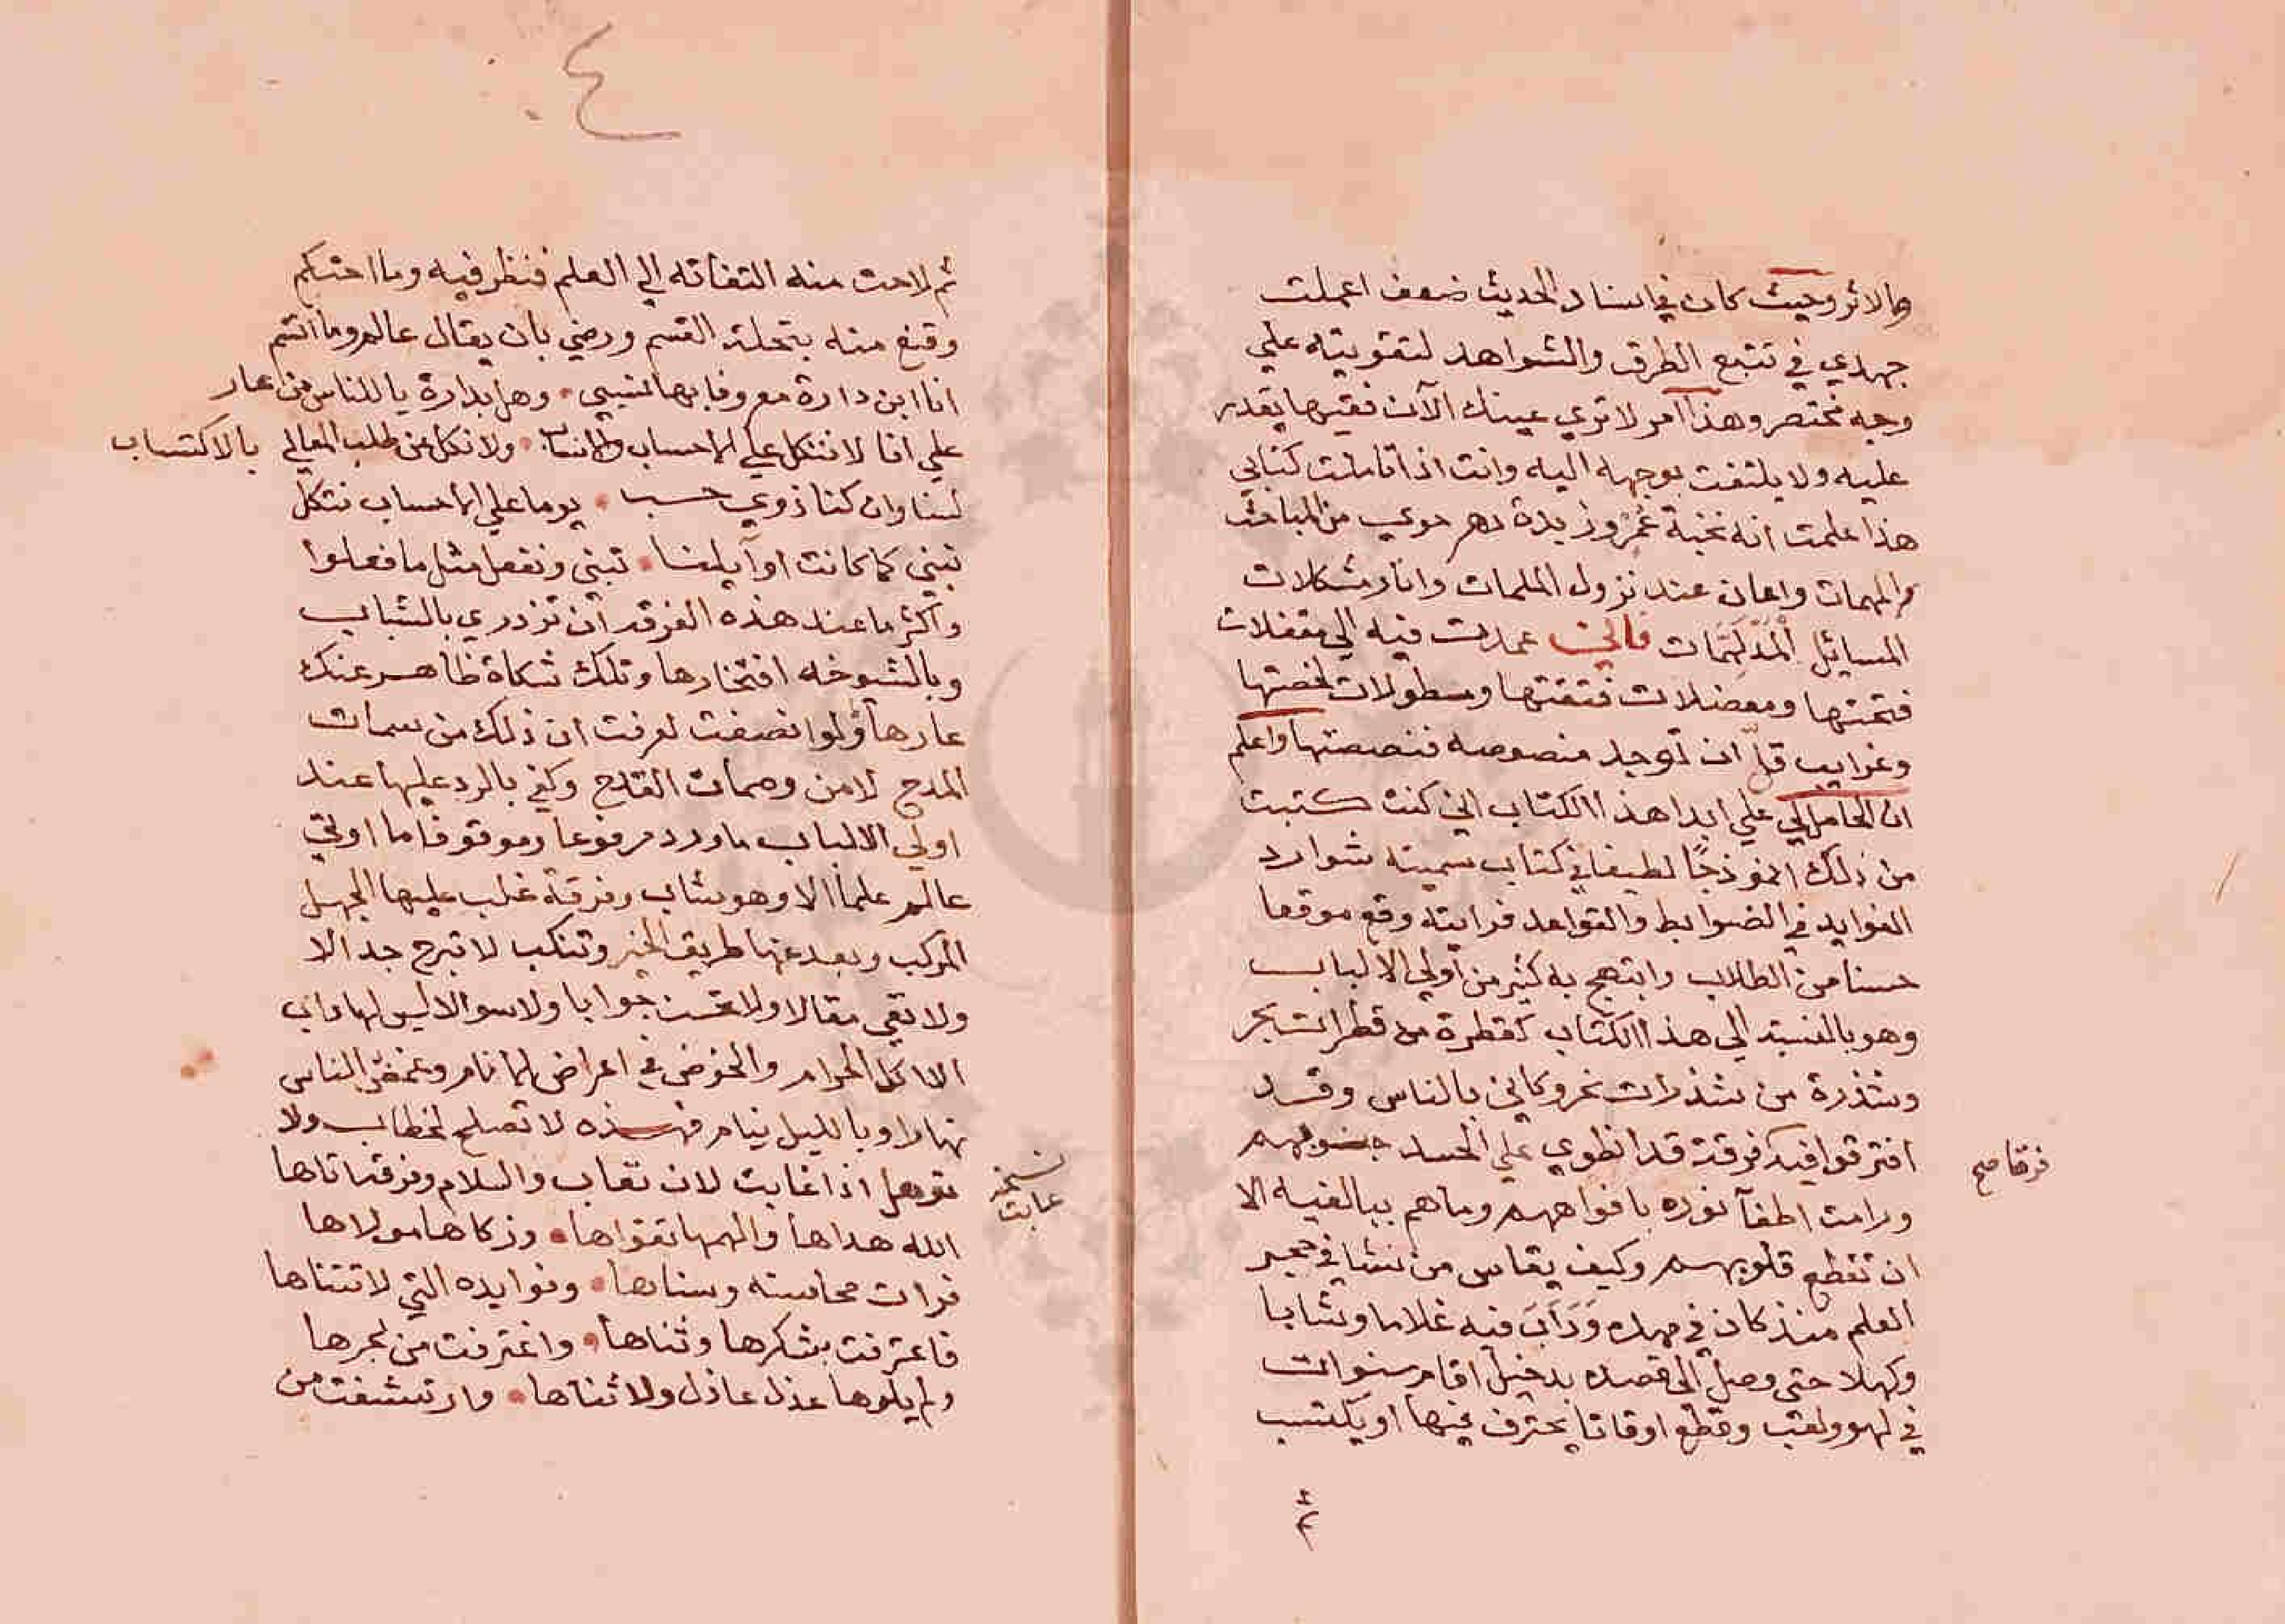 والاثر وحيث كان في اسناد الحديث ضعف اعملت
جهدي في تتبع الطرق والشواهد لتقويته علي
وجه مختصر وهذا امر لا تري عينك الآن فقيها يقدر
عليه ولا يلتفت بوجهه اليه وانت اذا تاملت كتابي
هذا علمت انه نخبة عُمُر وزبدة دهر حوي من المباحث
والمهمات واعان عند نزول الملمات وانار مشكلات
المسايل المُدلهِمّات فاني عمدت فيه الي مقفلات
فتحتها ومعضلات فنقحتها ومطولات لخصتها
وغرايب قلّ ان توجد منصوصه فنصصتها واعلم
ان الحامل لي علي ابدا هذا الكتاب اني كنت كتبت
من ذلك انموذجًا لطيفا في كتاب سميته شوارد
الفوايد في الضوابط والقواعد فرايته وقع موقعا
حسنا من الطلاب وابتهج به كثير من اولي الالباب
وهو بالنسبة الي هذا الكتاب كقطرة من قطرات بحر
وشذرة من شذرات نحر وكاني بالناس وقد
افترقوا فيه كفرقة قد انطوي علي الحسد جنوبهم
فرقا صح
ورامت اطفآ نوره بافواههم وما هم ببالغيه الا
ان تقطع قلوبهم وكيف يقاس من نشا في حجر
العلم منذ كان في مهده وَدَأبَ فيه غلاما وشابا
وكهلا حتى وصل الي قصده بدخيل اقام سنوات
في لهو ولعب وقطع اوقاتا يحترف فيها او يكتسب
٤
ثم لاحت منه التفاتة الي العلم فنظر فيه وما احتكم
وقنع منه بتحلة القسم ورضي بان يقال عالم وما اتسم
انا ابن دارة معروفا بها نسبي • وهل بدارة يا للناس من عار
علي انا لا نتكل علي الاحساب والانساب • ولا نكل عن طلب المعالي بالاكتساب
لسنا وان كنا ذوي حسب • يوما علي الاحساب نتكل
نبني كما كانت اوآيلنا • تبني ونفعل مثل ما فعلوا
واكثر ما عند هذه الفرقة ان تزدري بالشباب
وبالشيوخه افتخارها وتلك شكاة ظاهر عنك
عارها ولو انصفت لعرفت ان ذلك من سمات
المدح لا من وصمات القدح وكفي بالرد عليها عند
اولي الالباب ما ورد مرفوعا وموقوفا ما اوتي
عالم علما الا وهو شاب وفرقة غلب عليها الجهل
المركب وبعد عنها طريق الخير وتنكب لا تبرح جدالا
ولا تعي مقالا ولا تحسن جوابا ولا سوالا ليس لها داب
الا اكل الحرام والخوض في اعراض الانام وغمص الناس
نهارا وبالليل نيام فهذه لا تصلح لخطاب ولا
توهل اذا غابت لان تعاب والسلام وفرقة اتاها
نسخه
عابت
الله هداها والهمها تقواها • وزكاها مولاها
فرات محاسنه وسناها • وفوايده التي لا تتناها
فاعترفت بشكرها وثناها • واغترفت من بحرها
ولم يلوها عذل عاذل ولا ثناها • وارتشفت من